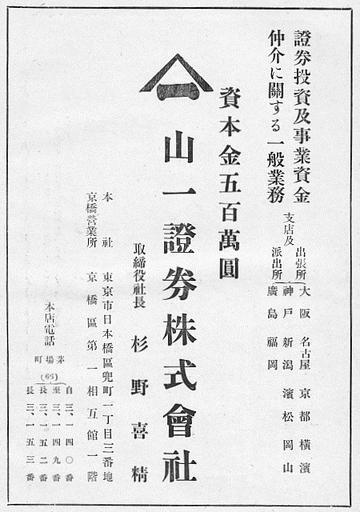 證券投資及事業資金
仲介に關する一般業務
支店及
出張所
派出所
大阪 名古屋 京都 橫濱
神戶 新潟 濱松 岡山
廣島 福岡
資本金五百萬圓
山一證券株式會社
取締役社長 杉野喜精
本社 東京市日本橋區兜町一丁目三番地
京橋營業所 京橋區第一相互館一階
本店電話
茅場町(66)
自三、一四〇番
至三、一四九番
長三、一五二番
長三、一五三番